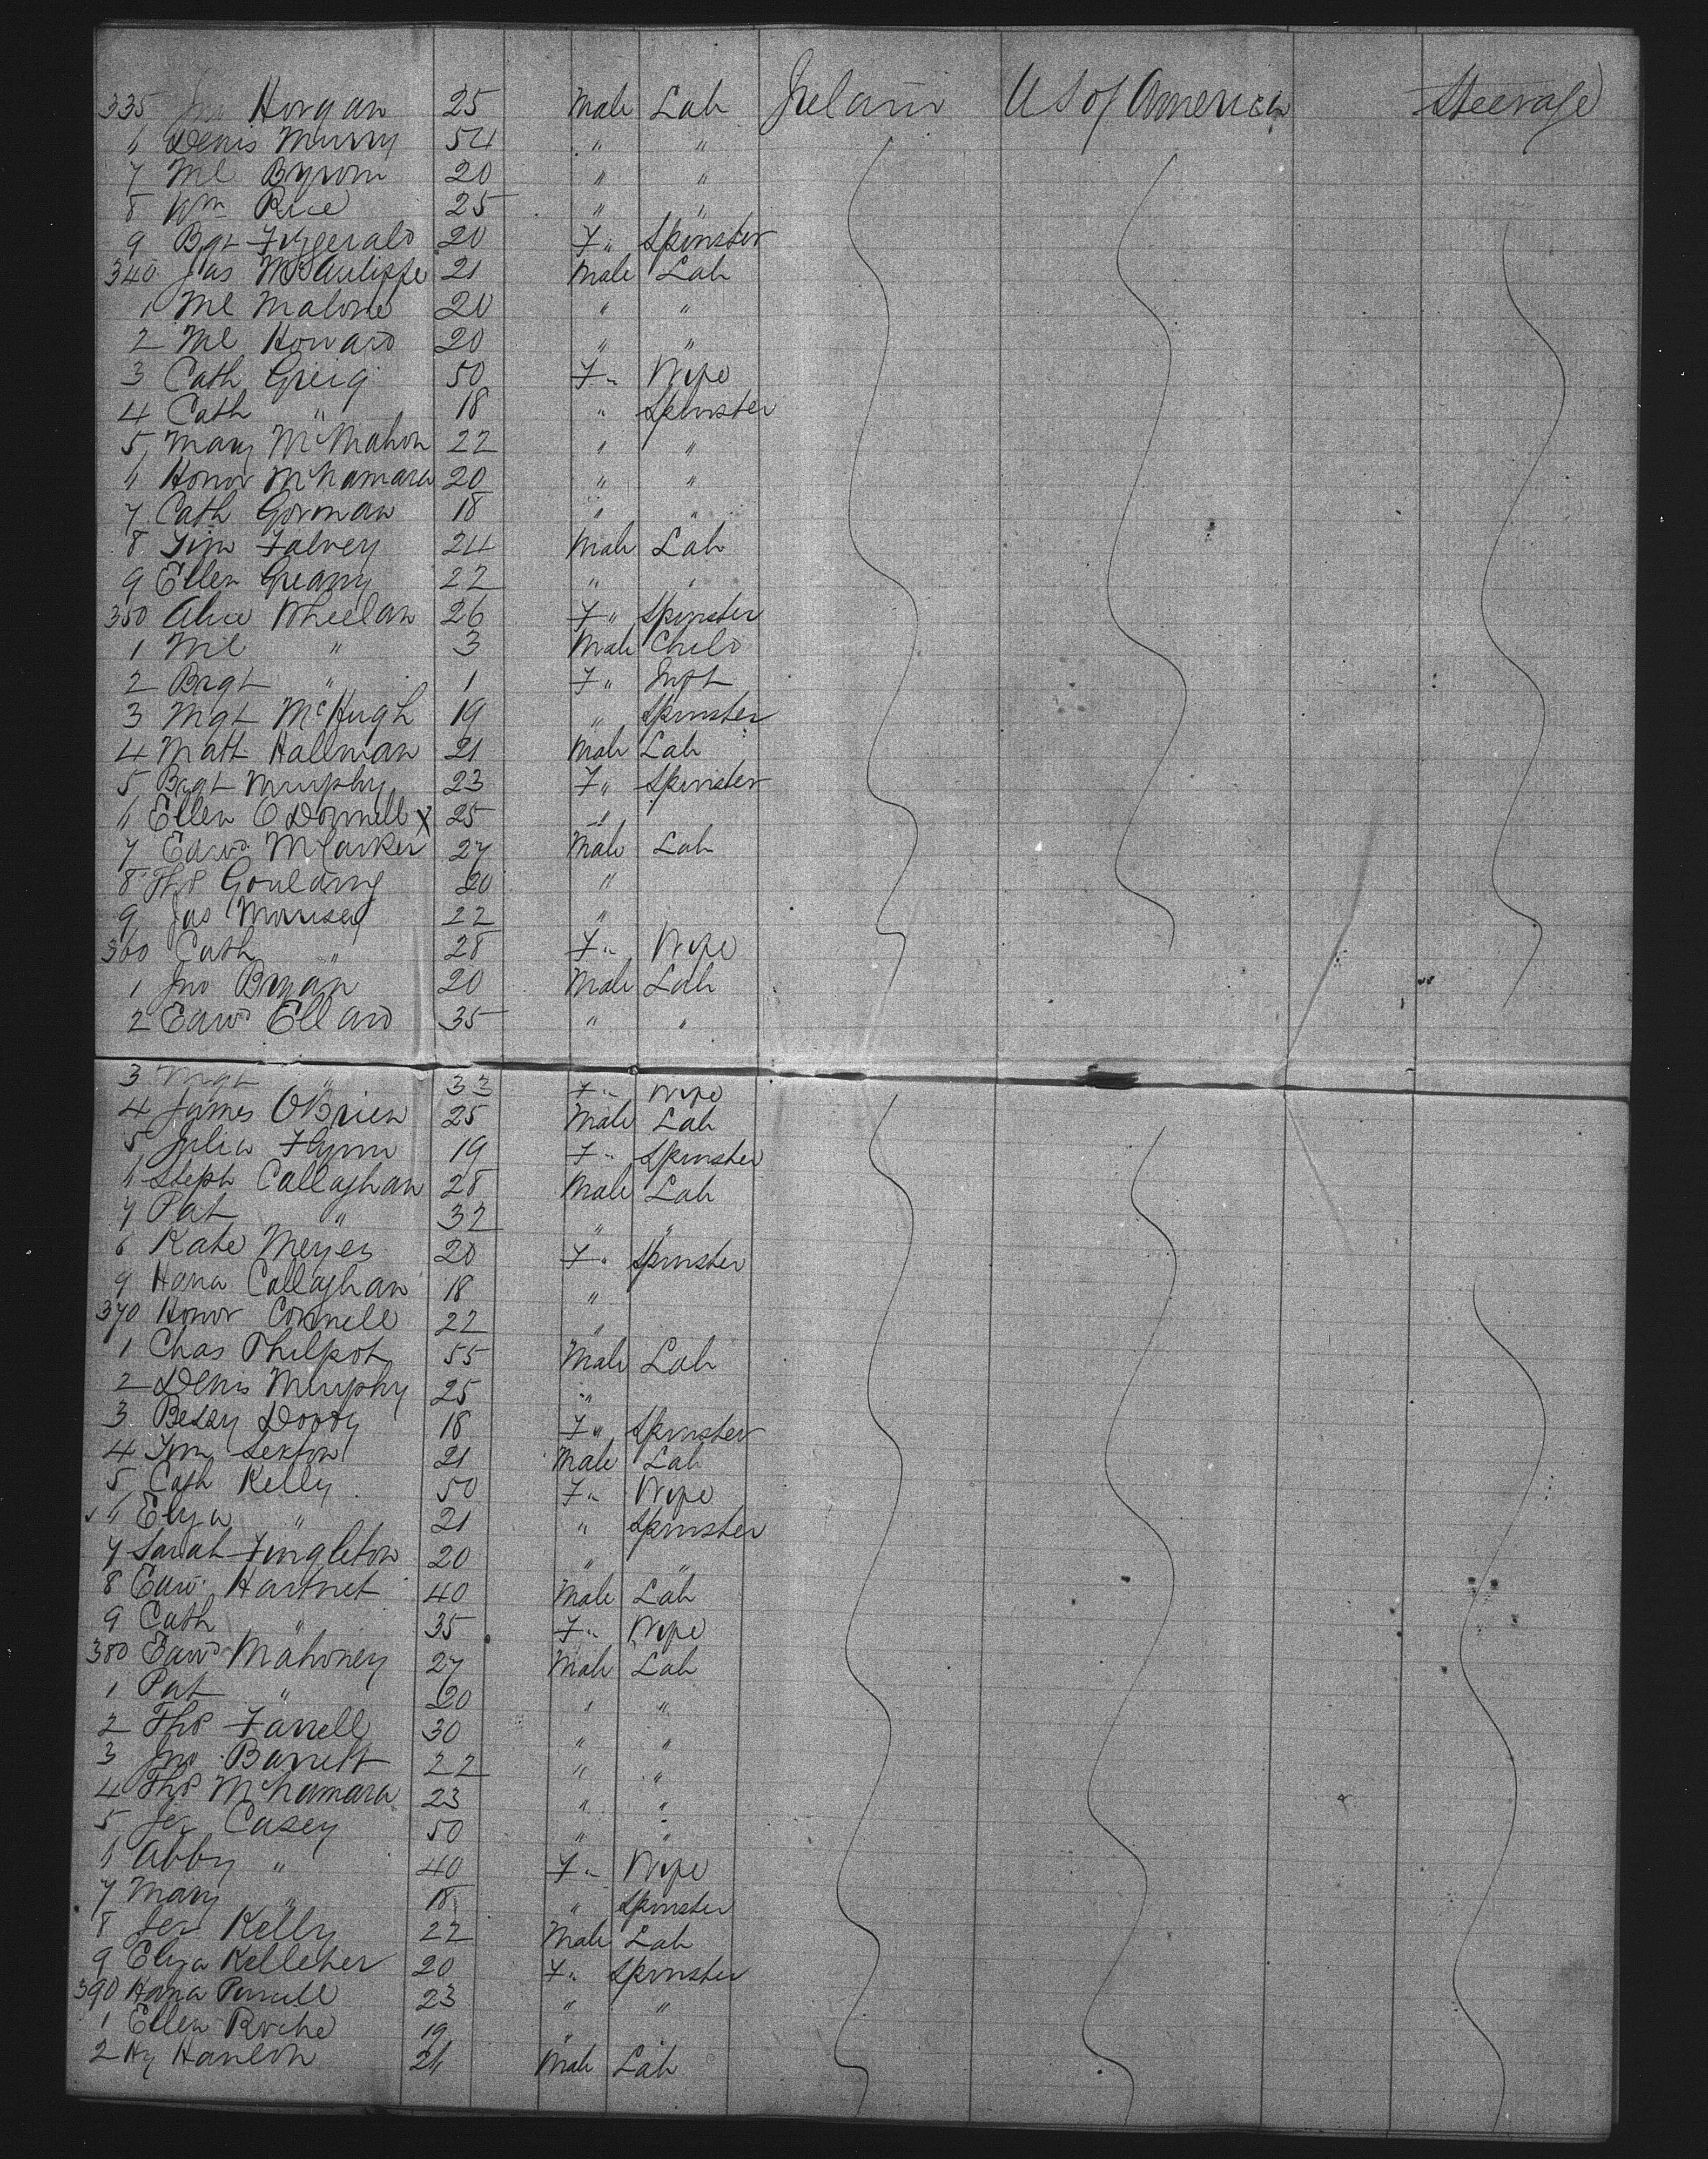 335 Jno Horgan 25 Male Lab Ireland US of America Steerage
6 Denis Murry 54 " "
7 Ml Byrom 20 " "
8 Wm Rice 25 " "
9 Bgt Fitzgerald 20 F " Spinster
340 Jas McAuliffe 21 Male Lab
1 Ml Malone 20 " "
2 Ml Howard 20 " "
3 Cath Greig 50 F " Wife
4 Cath " 18 " Spinster
5 Mary McMahon 22 " "
6 Honor McNamara 20 " "
7 Cath Gorman 18 " "
8 Tim Falvey 24 Male Lab
9 Ellen Greany 22 " "
350 Alice Wheelan 26 F " Spinster
1 Ml " 3 Male Child
2 Brgt " 1 F " Inft
3 Mgt McHugh 19 " Spinster
4 Matt Hallinan 21 Male Lab
5 Brgt Murphy 23 F " Spinster
6 Ellen O Donnell X 25 " "
7 Edwd 27 Male Lab
8 Thos Goulding 20 "
9 Jas Morrisey 22 "
360 Cath " 28 F " Wife
1 Jno Bryan 20 Male Lab
2 Edwd Ellard 35 " "
3 Mgt " 33 F " Wife
4 James OBrien 25 Male Lab
5 Julia Flynn 19 F " Spinster
6 Steph Callaghan 28 Male Lab
7 Pat " 32 " "
8 Kate Meyes 20 F " Spinster
9 Hana Callaghan 18 "
370 Honor Connell 22 "
1 Chas Philpot 55 Male Lab
2 Denis Murphy 25 "
3 Bessy Doody 18 F " Spinster
4 Tim Sexton 21 Male Lab
5 Cath Kelly 50 F " Wife
6 Eliza " 21 " Spinster
7 Sarah Fingleton 20 " "
8 Edwd Hartnet 40 Male Lab
9 Cath " 35 F " Wife
380 Edwd Mahoney 27 Male Lab
1 Pat " 20 " "
2 Thos Farrell 30 " "
3 Jno Barrett 22 " "
4 Thos McNamara 23 " "
5 Jer Casey 50 " "
6 Abby " 40 F " Wife
7 Mary " 18 " Spinster
8 Jer Kelly 22 Male Lab
9 Eliza Kelleher 20 F " Spinster
390 Hana Purcell 23 " "
1 Ellen Roche 19 "
2 Hy Hanlon 26 Male Lab